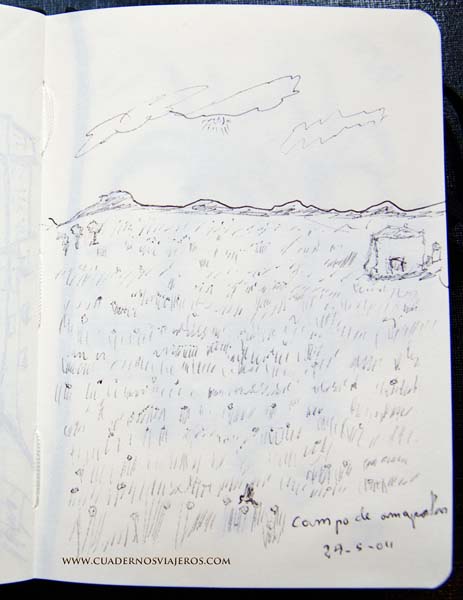 campo de amapolas
27-5-04
WWW.CUADERNOSVIAJEROS.COM